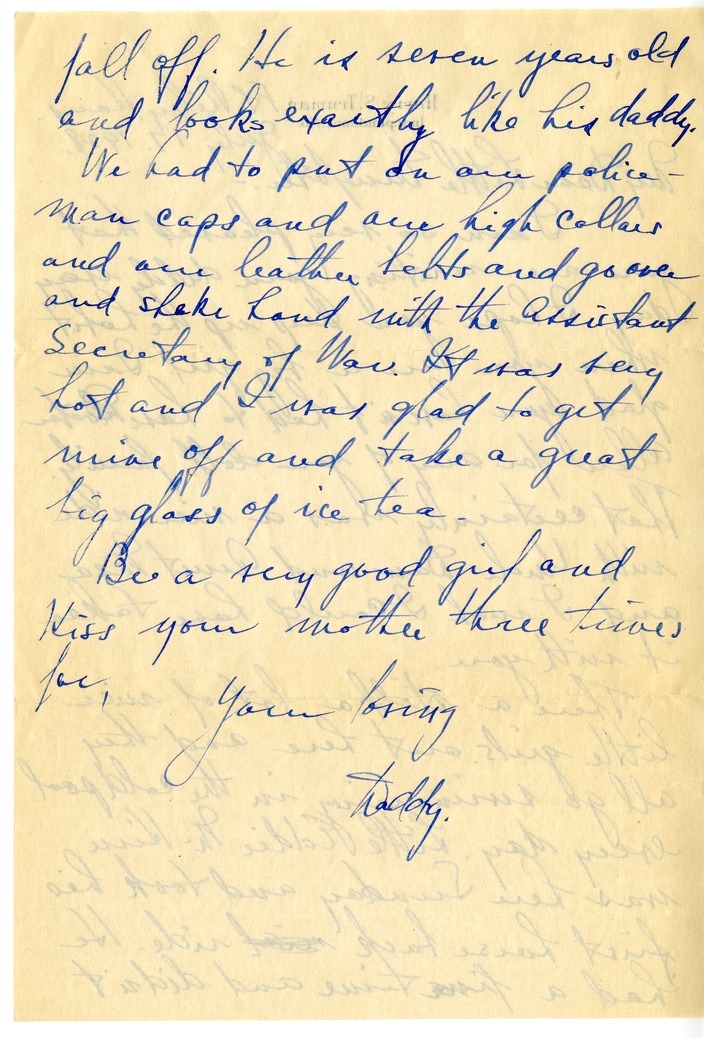 fall off. He is seven years old
and looks exactly like his daddy.
We had to put on our police-
man caps and our high collars
and our leather belts and go over
and shake hand with the Assistant
Secretary of War. It was very
hot and I was glad to get
mine off and take a great
big glass of ice tea.
Be a very good girl and
Kiss your mother three times
for,
Your loving
Daddy.